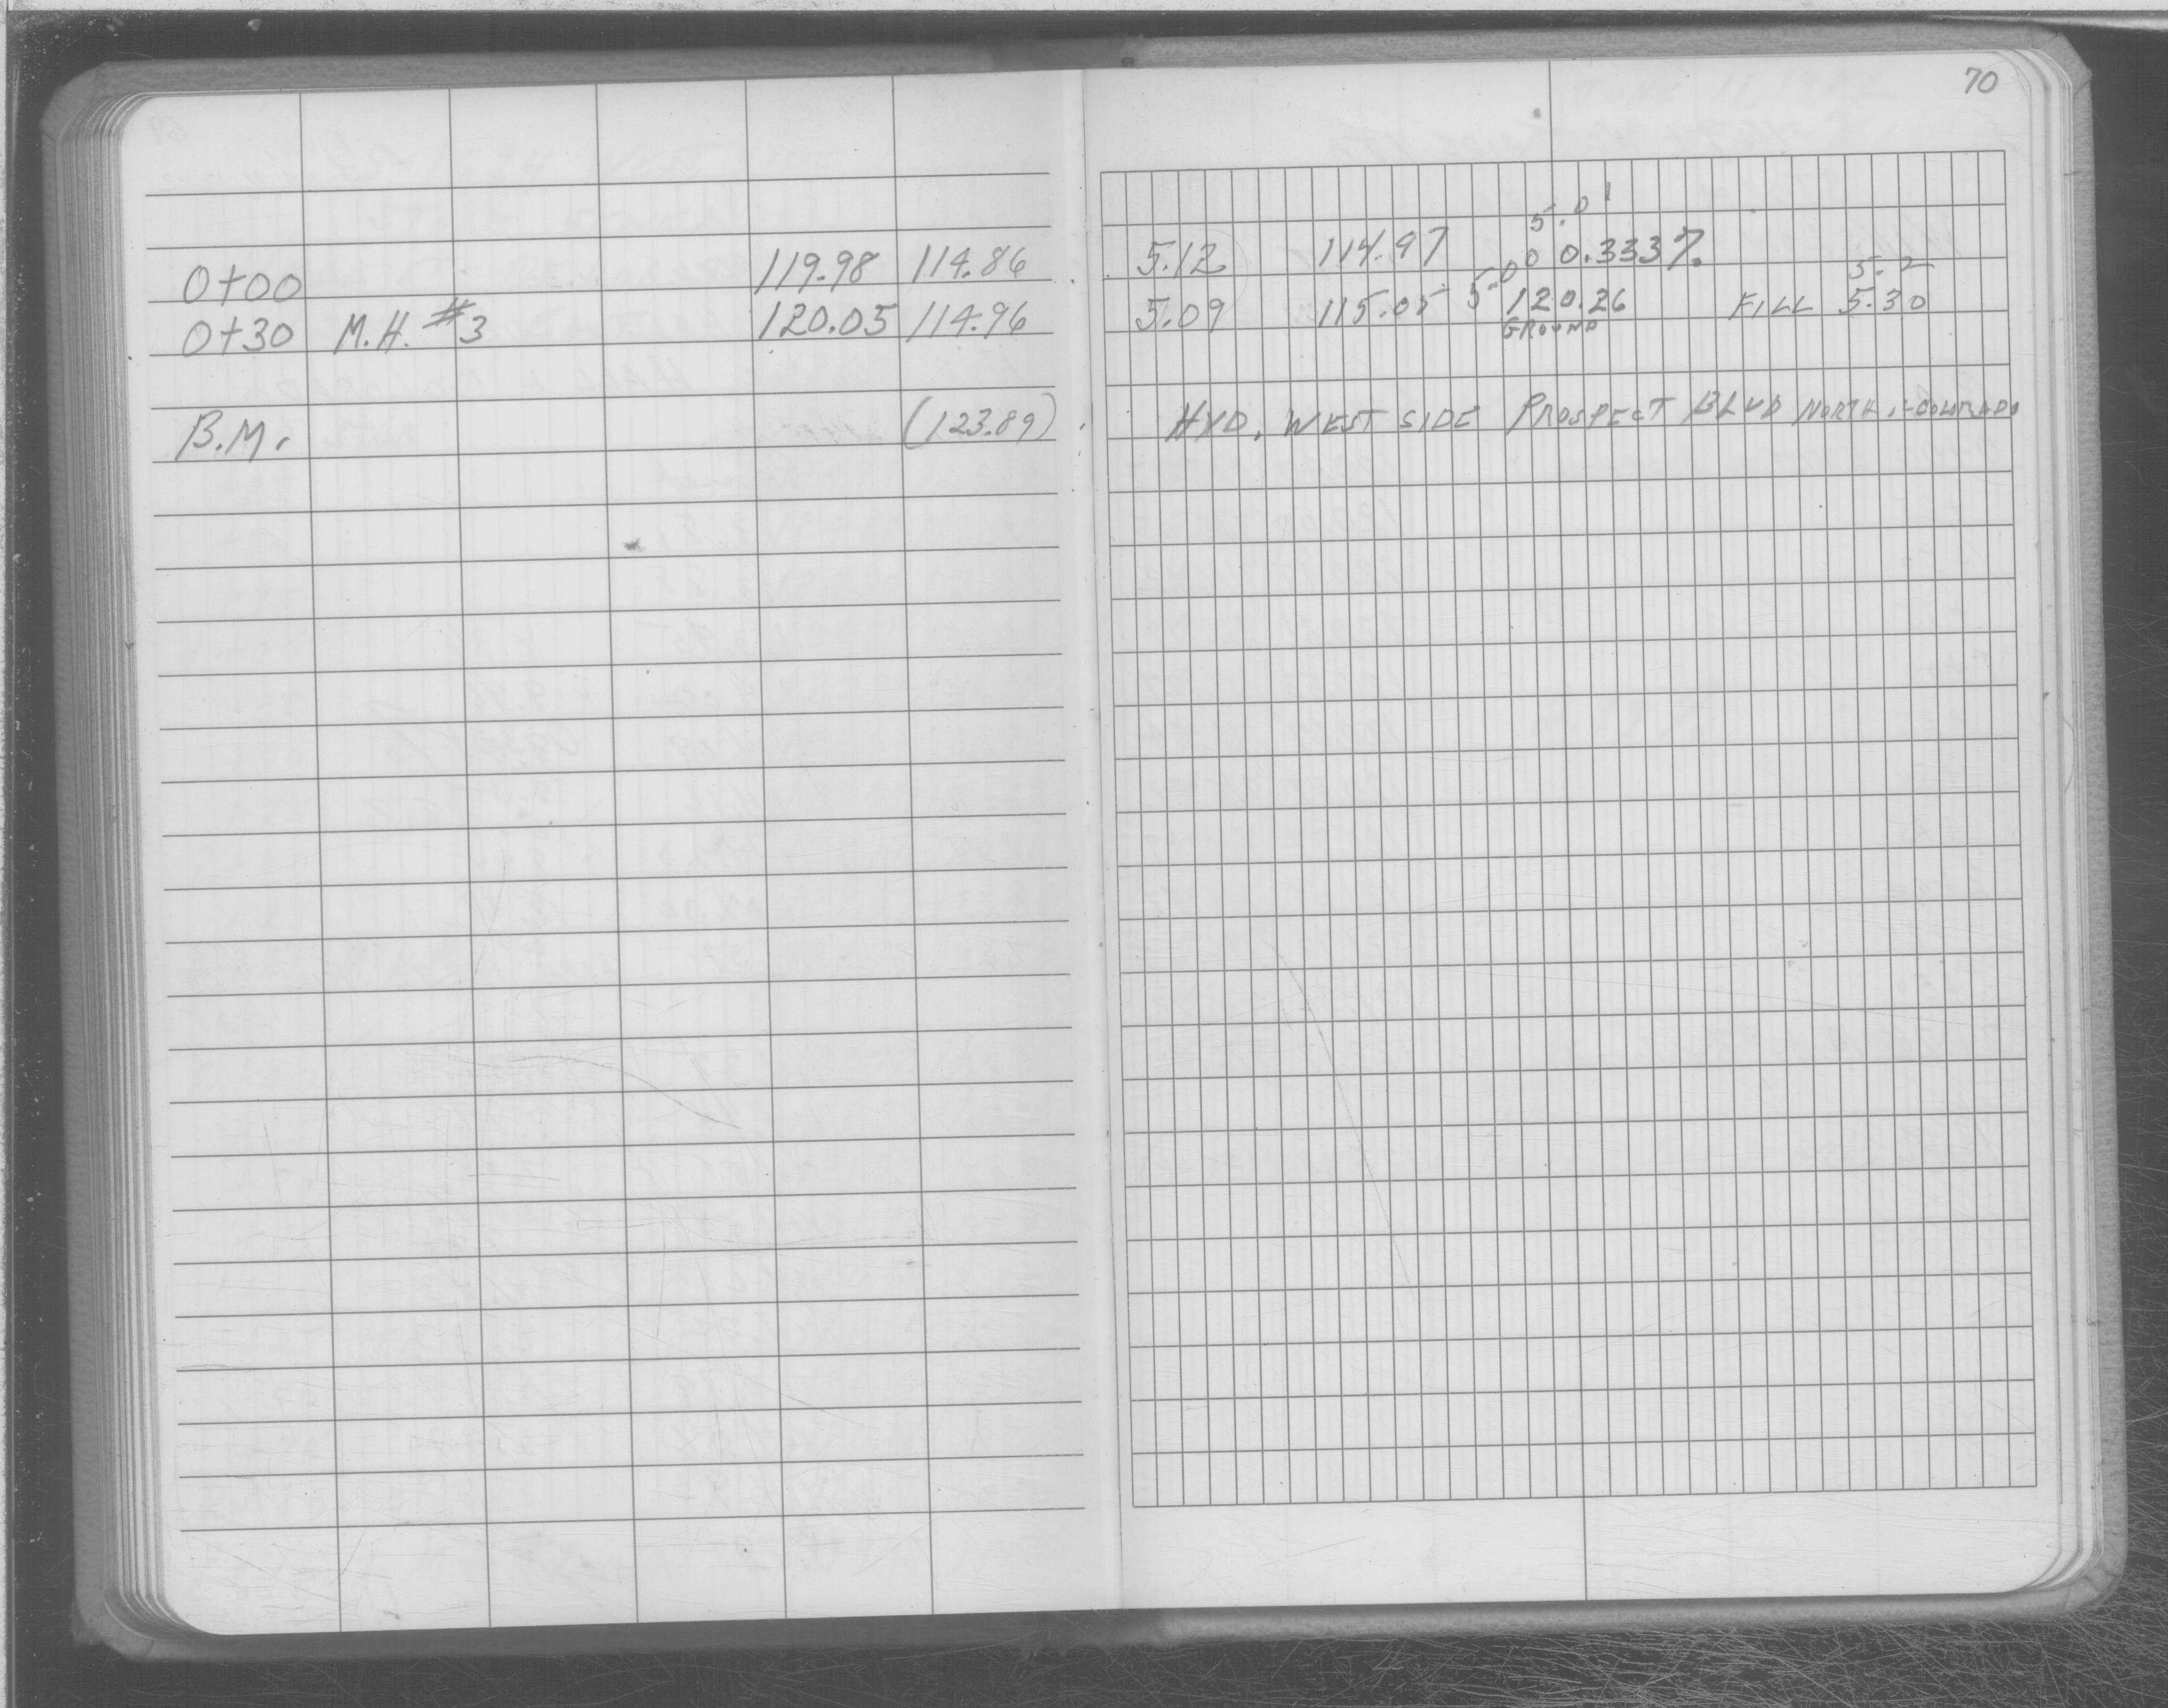 70
5.01
0+00 119.98 114.86 5.12 114.97 5.00 0.333%
5.2
0+30 M.H. #3 120.05 114.96 5.09 115.05 120.26 FILL 5.30
GROUND
B.M. (123.89) HYD. WEST SIDE PROSPECT BLVD NORTH COLORADO